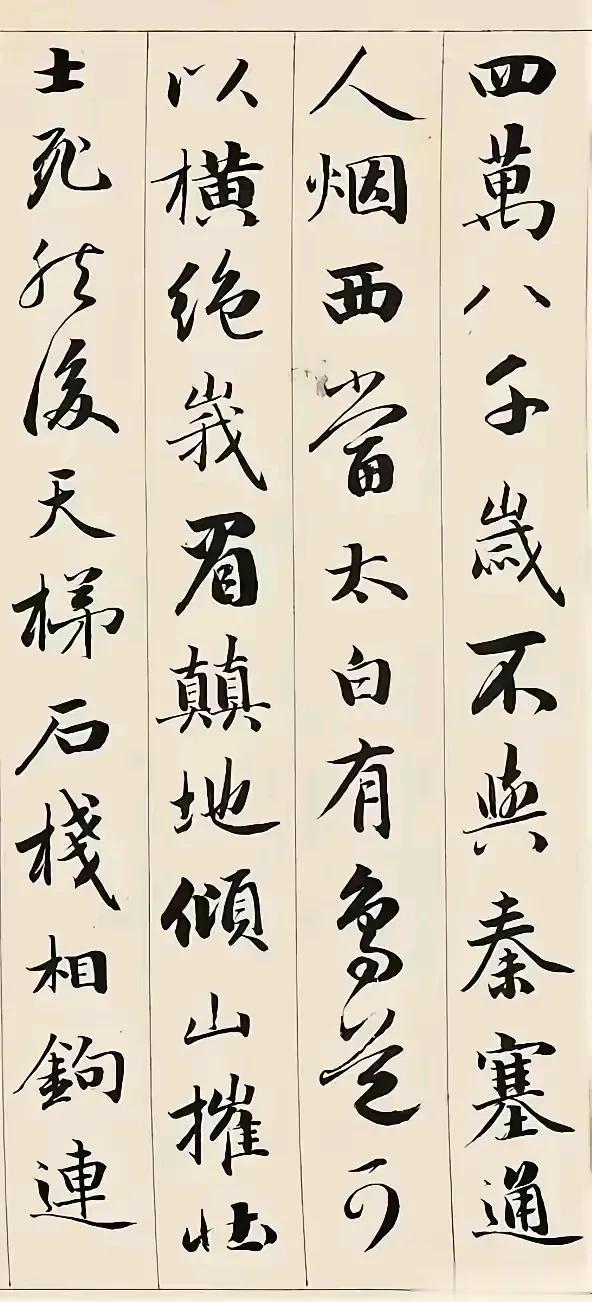 四萬八千歲不與秦塞通
人烟西當太白有鳥道可
以橫絕峩眉顛地傾山摧壮
士死然後天梯石棧相鉤連